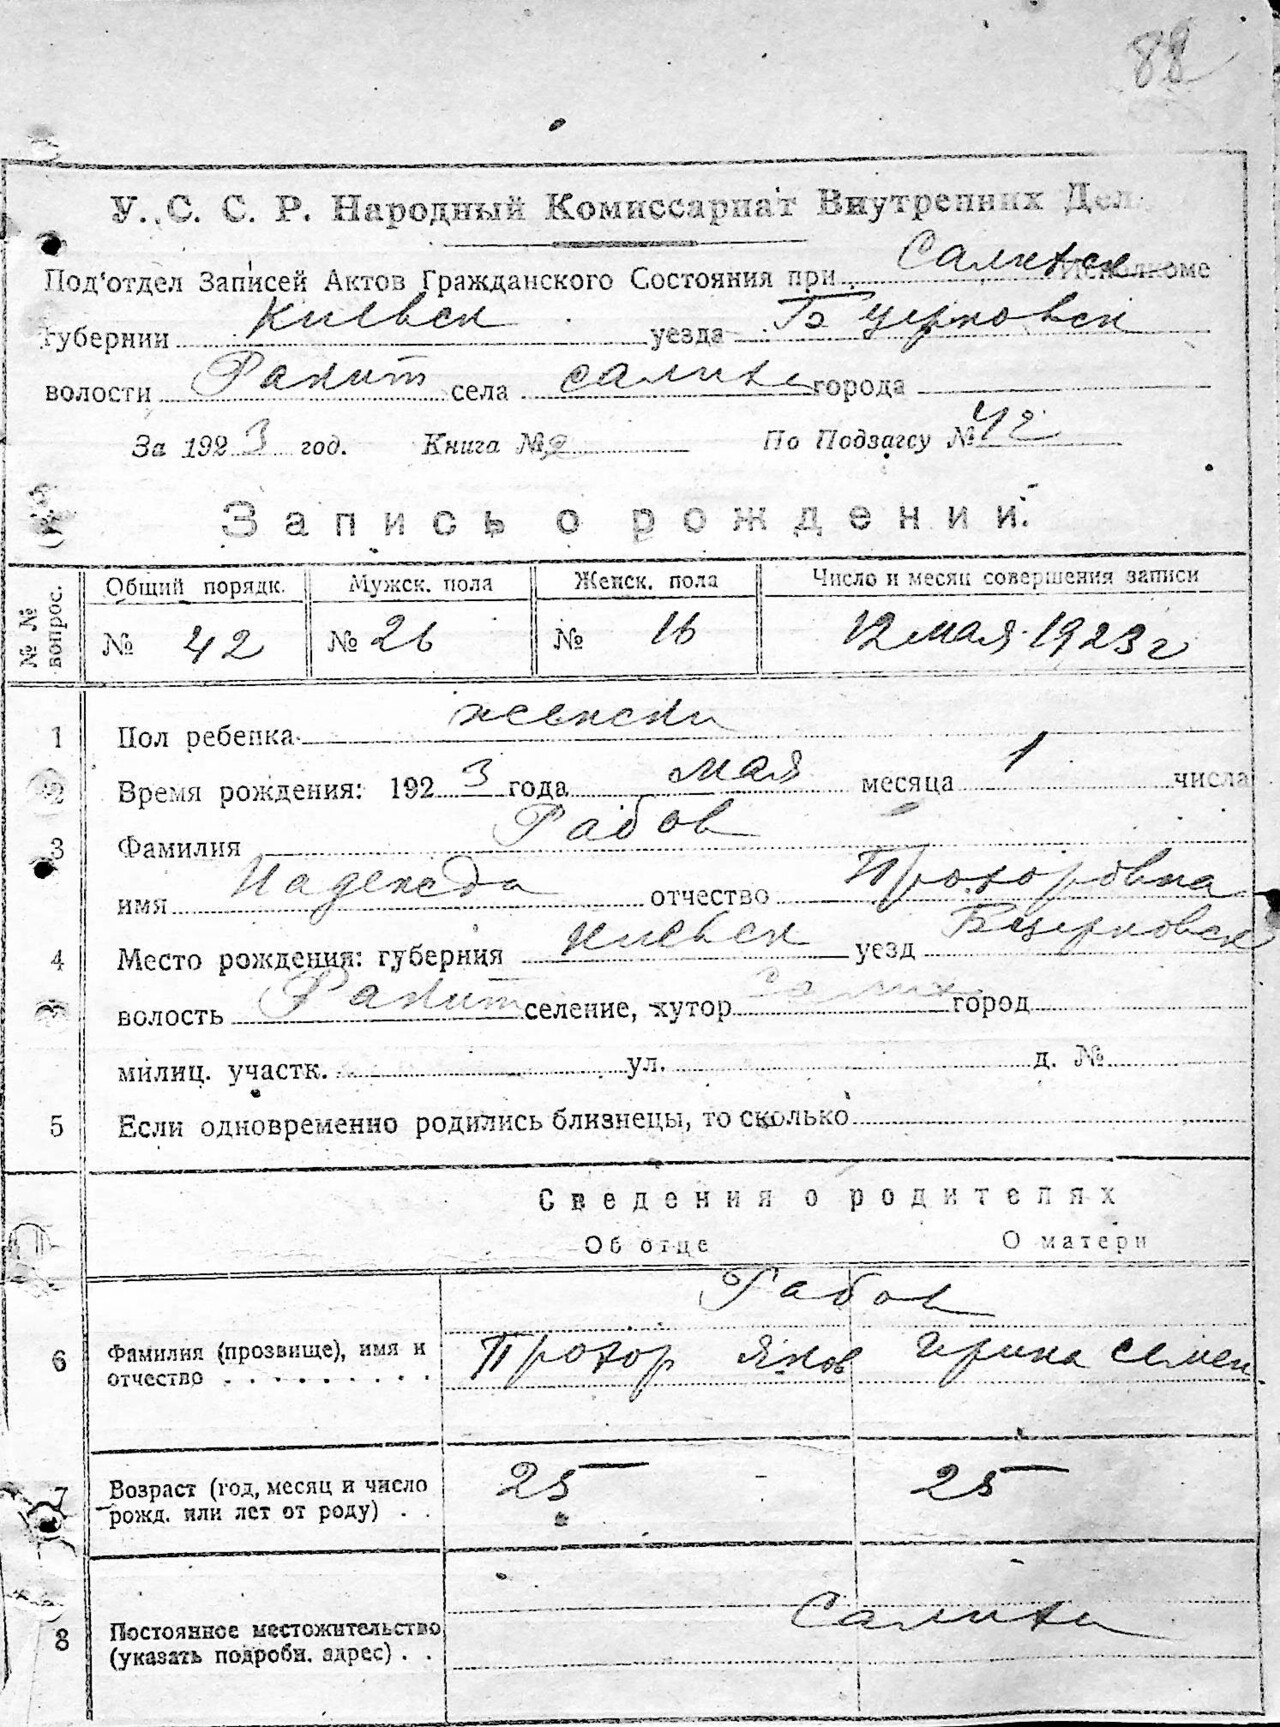 88
У. С. С. Р. Народный Комиссариат Внутренних Дел.
Под'отдел Записей Актов Гражданского Состояния при Салихск Исполкоме
губернии Киевск уезда Б церковск
волости Ракит села Салиха города
За 1923 год. Книга № 2 По Подзагсу № 42
Запись о рождении.
№ № вопрос. Общий порядк. Мужск. пола Женск. пола Число и месяц совершения записи
№ 42 № 26 № 16 12 мая 1923 г
1 Пол ребенка женски
2 Время рождения: 1923 года мая месяца 1 числа
3 Фамилия Рабов
имя Надежда отчество Прохоровна
4 Место рождения: губерния Киевск уезд Бцерковск
волость Ракит селение, хутор Салих город
милиц. участк. ул. д. №
5 Если одновременно родились близнецы, то сколько
Сведения о родителях
Об отце О матери
Рабов
6 Фамилия (прозвище), имя и Прохор Яков Ирина Семен
отчество
7 Возраст (год, месяц и число 25 25
рожд. или лет от роду)
Салиха
8 Постоянное местожительство
(указать подробн. адрес)